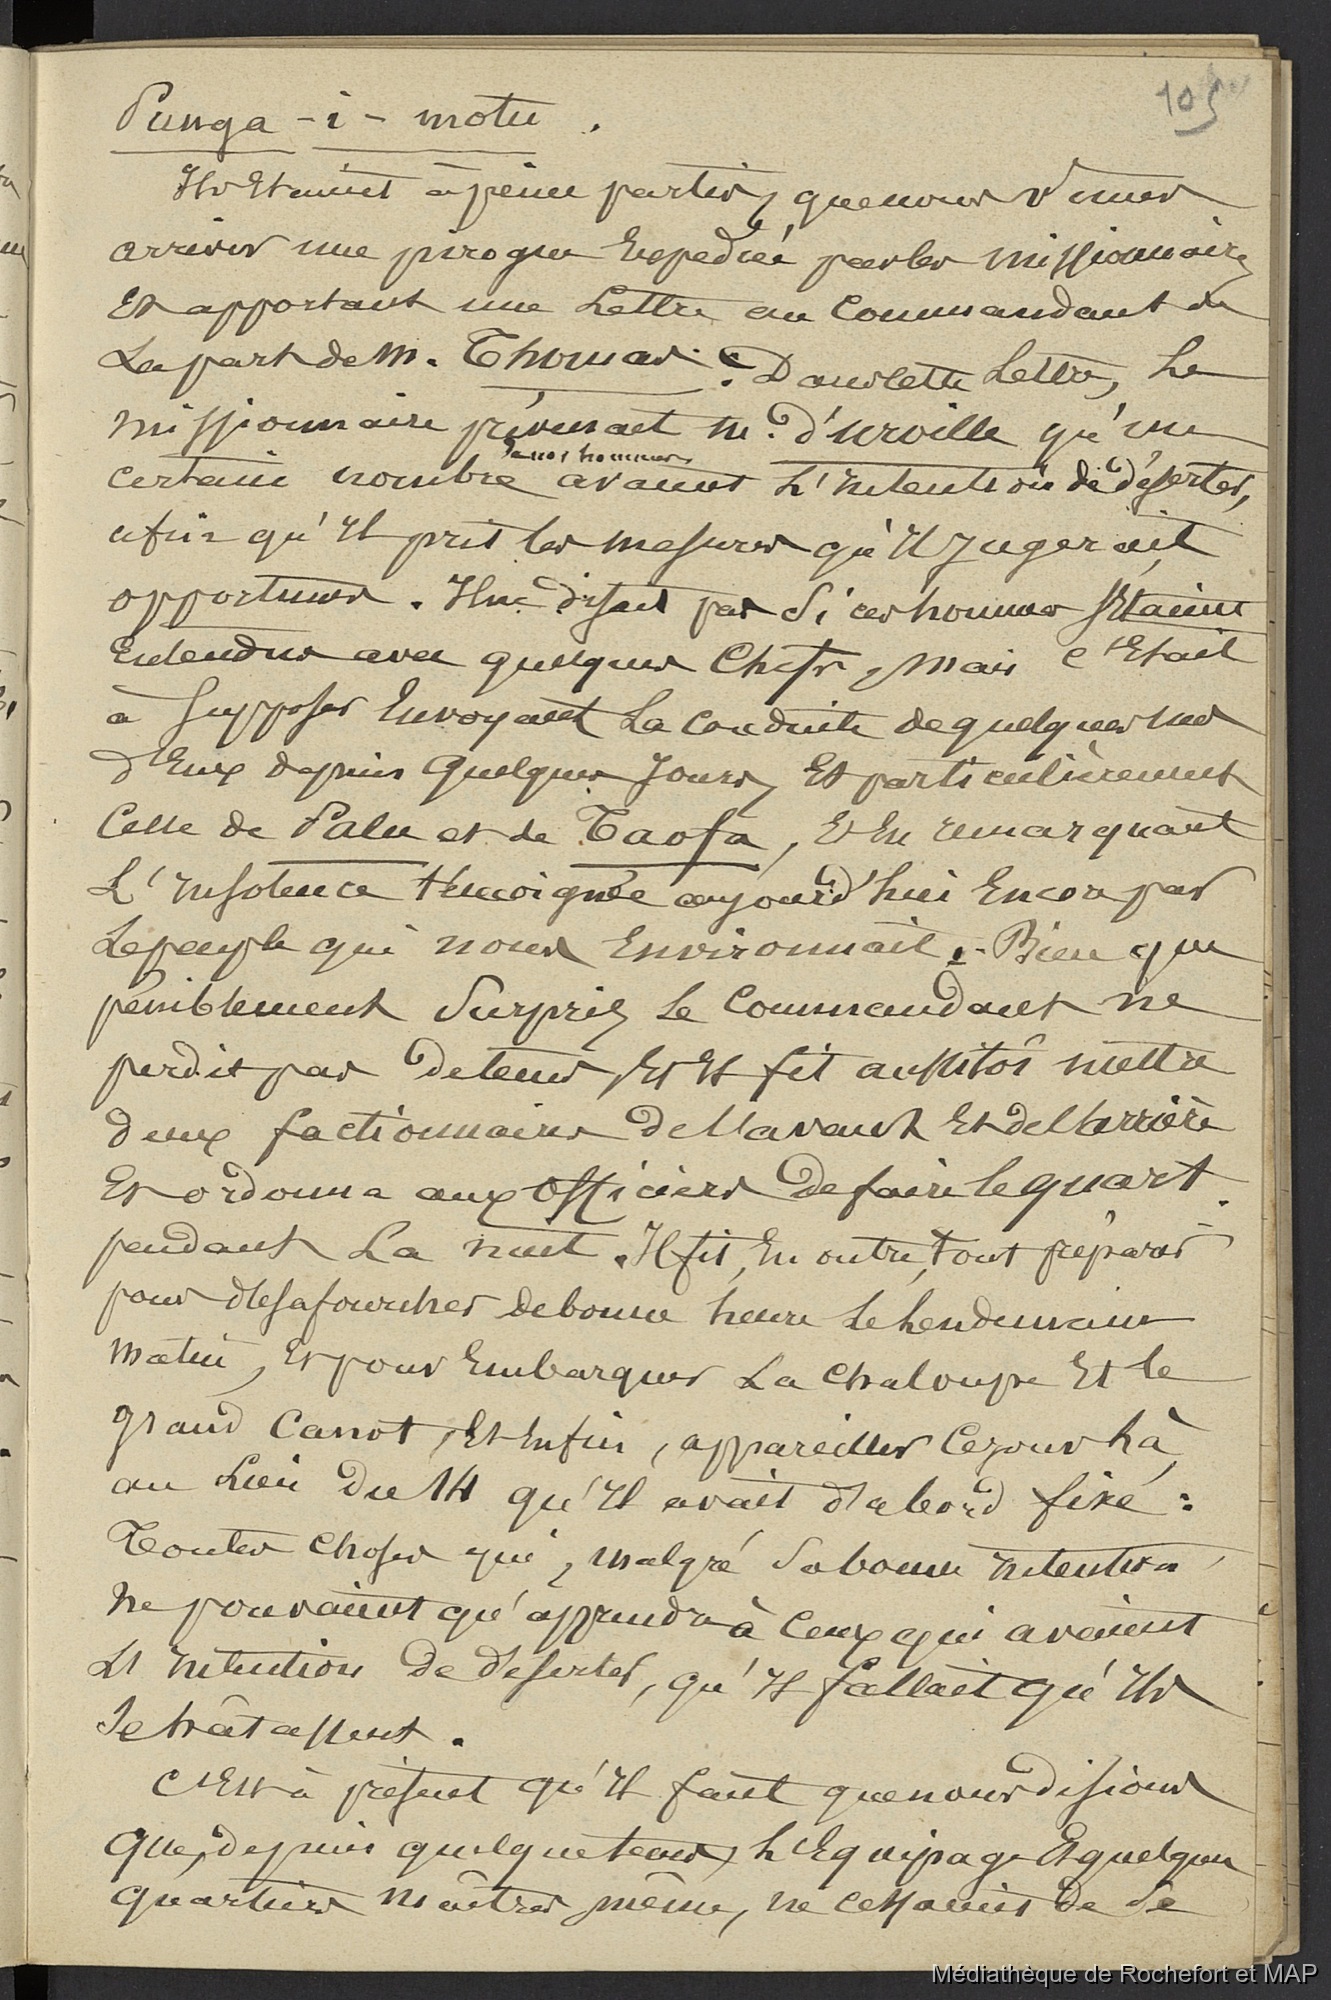 105
Punga-i-motu.
Ils Etaient à peine partis, que nous vimes
arriver une pirogue Expediée par les missionnaires
Et apportant une Lettre au Commandant de
La part de M. Thomas. Dans cette Lettre, Le
missionnaire prévenait M. d'urville qu'un
certain nombre de nos hommes avaient L'intention de déserter,
afin qu'Il prit les mesures qu'Il Jugerait
opportunes. Il ne disait pas Si ces hommes s'Etaient
Entendus avec quelques Chefs, mais c'Etait
à Supposer En voyant La conduite de quelques uns
d'Eux depuis Quelques Jours, Et particulièrement
Celle de Palu et de Taofa, Et En remarquant
L'Insolence témoignée aujourd'hui Encore par
Le peuple qui nous Environnait. - Bien que
péniblement Surpris, Le Commandant ne
perdit pas de tems, Et Il fit aussitôt mettre
deux factionnaires de l'avant Et de l'arrière
Et ordonna aux Officiers de faire le quart
pendant La nuit. Il fit, En outre, tout préparer
pour désafourcher de bonne heure Le Lendemain
matin, Et pour Embarquer La Chaloupe Et le
grand Canot, Et Enfin, appareiller Ce jour là,
au Lieu du 14 qu'Il avait d'abord fixé :
Toutes choses qui, malgré Sa bonne intention
ne pouvaient qu'apprendre à Ceux qui avaient
L'Intention de déserter, qu'Il fallait qu'Ils
Se hâtassent.
C'Est à présent qu'Il faut que nous disions
que, depuis quelque tems, L'Equipage Et quelques
quartiers maîtres même, ne cessaient de Se
Médiathèque de Rochefort et MAP